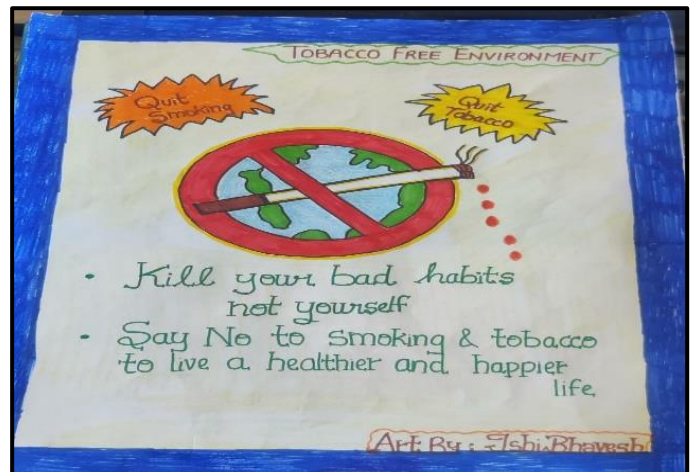 TOBACCO FREE ENVIRONMENT
Quit
Smoking
Quit
Tobacco
• Kill your bad habits
not yourself
• Say No to smoking & tobacco
to live a healthier and happier
life
Art By : Ishi.Bhavesh